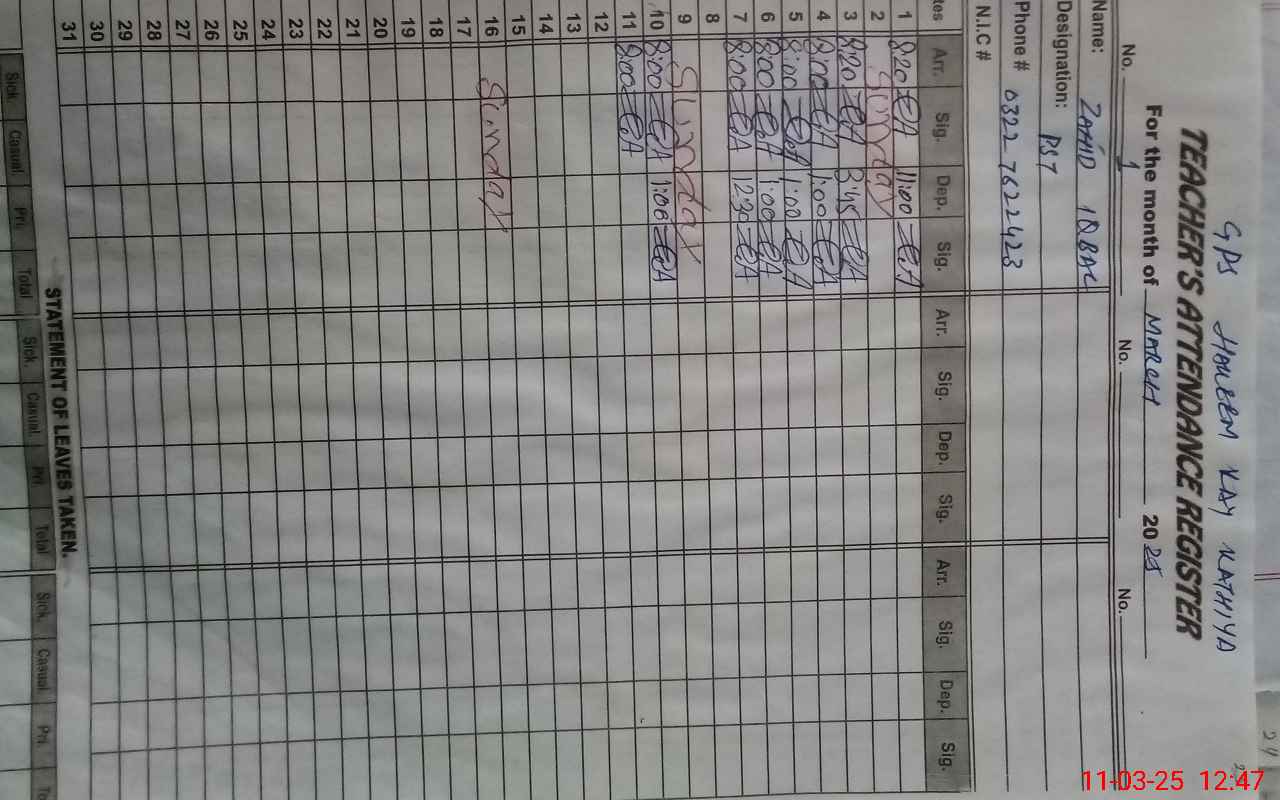 GPS HAKEEM KAY KATHIYA
TEACHER'S ATTENDANCE REGISTER
For the month of MARCH 2025
No. 1 No. No.
Name: ZAHID IQBAL
Designation: PST
Phone # 0322 7622423
N.I.C #
tes Arr. Sig. Dep. Sig. Arr. Sig. Dep. Sig. Arr. Sig. Dep. Sig.
1 8:20 11:00
2 Sunday
3 8:20 3:45
4 8:00 1:00
5 8:00 1:00
6 8:00 1:00
7 8:00 12:30
8
9 Sunday
10 8:00 1:00
11 8:00
12
13
14
15
16 Sunday
17
18
19
20
21
22
23
24
25
26
27
28
29
30
31
STATEMENT OF LEAVES TAKEN.
Sick. Casual. Pri. Total Sick. Casual. Pri. Total Sick. Casual. Pri. To
11-03-25 12:47